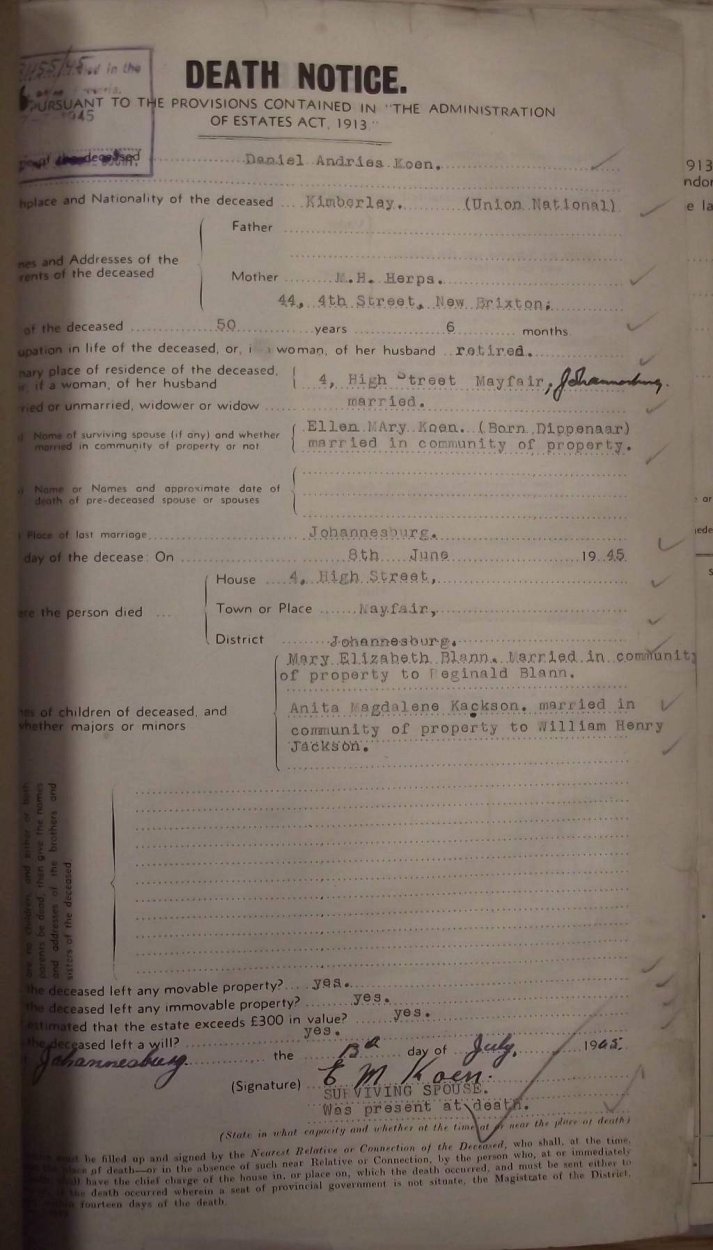 in the
1945
DEATH NOTICE.
PURSUANT TO THE PROVISIONS CONTAINED IN "THE ADMINISTRATION
OF ESTATES ACT, 1913."
deceased Daniel Andries Koen.
hplace and Nationality of the deceased Kimberley. (Union National)
Father
mes and Addresses of the
rents of the deceased
Mother M.H. Herps.
44, 4th Street, New Brixton;
of the deceased 50 years 6 months.
upation in life of the deceased, or, i a woman, of her husband retired.
nary place of residence of the deceased,
r, if a woman, of her husband 4, High Street Mayfair, Johannesburg.
ried or unmarried, widower or widow married.
Name of surviving spouse (if any) and whether
married in community of property or not
Ellen MAry Koen. (Born Dippenaar)
married in community of property.
Name or Names and approximate date of
death of pre-deceased spouse or spouses
Place of last marriage Johannesburg.
day of the decease: On 8th June 1945
House 4, High Street,
ere the person died Town or Place Mayfair,
District Johannesburg.
Mary Elizabeth Blann. Married in community
of property to Reginald Blann.
es of children of deceased, and
whether majors or minors
Anita Magdalene Kackson. married in
community of property to William Henry
Jackson.
are no children, and either or both
parents be dead, then give the names
and addresses of the brothers and
sisters of the deceased.
the deceased left any movable property? yes.
the deceased left any immovable property? yes.
estimated that the estate exceeds £300 in value? yes.
the deceased left a will? yes.
Johannesburg the 13th day of July, 1945.
(Signature) E M Koen.
SURVIVING SPOUSE.
Was present at death.
(State in what capacity and whether at the time at or near the place of death)
must be filled up and signed by the Nearest Relative or Connection of the Deceased, who shall, at the time,
place of death—or in the absence of such near Relative or Connection, by the person who, at or immediately
shall have the chief charge of the house in, or place on, which the death occurred, and must be sent either to
if the death occurred wherein a seat of provincial government is not situate, the Magistrate of the District,
within fourteen days of the death.
913
ndon
e la